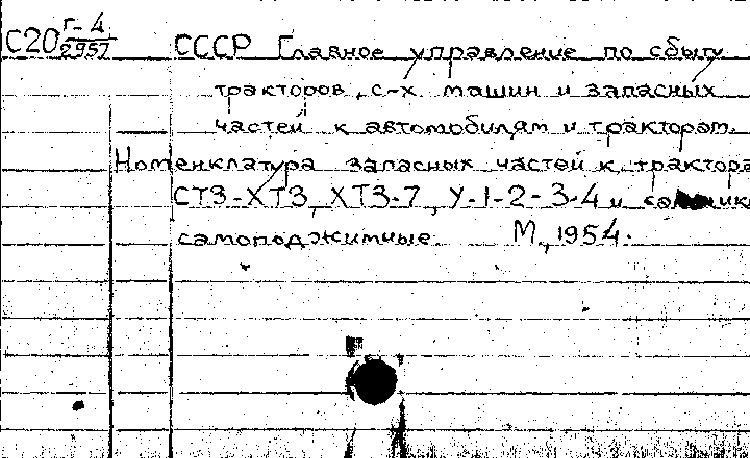 С20 Г-4/2957 СССР Главное управление по сбыту
тракторов, с-х. машин и запасных
частей к автомобилям и тракторам.
Номенклатура запасных частей к трактора
СТЗ-ХТЗ, ХТЗ-7, У-1-2-3-4 и
самоподжимные. М., 1954.